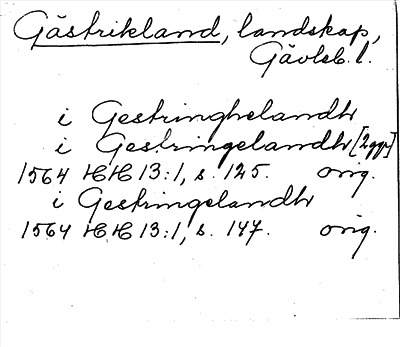 Gästrikland, landskap,
Gävleb. l.
i Gestringhelandh
i Gestringelandh [2 ggr]
1564 HH 13:1, s. 125. orig.
i Gestringelandh
1564 HH 13:1, s. 147. orig.